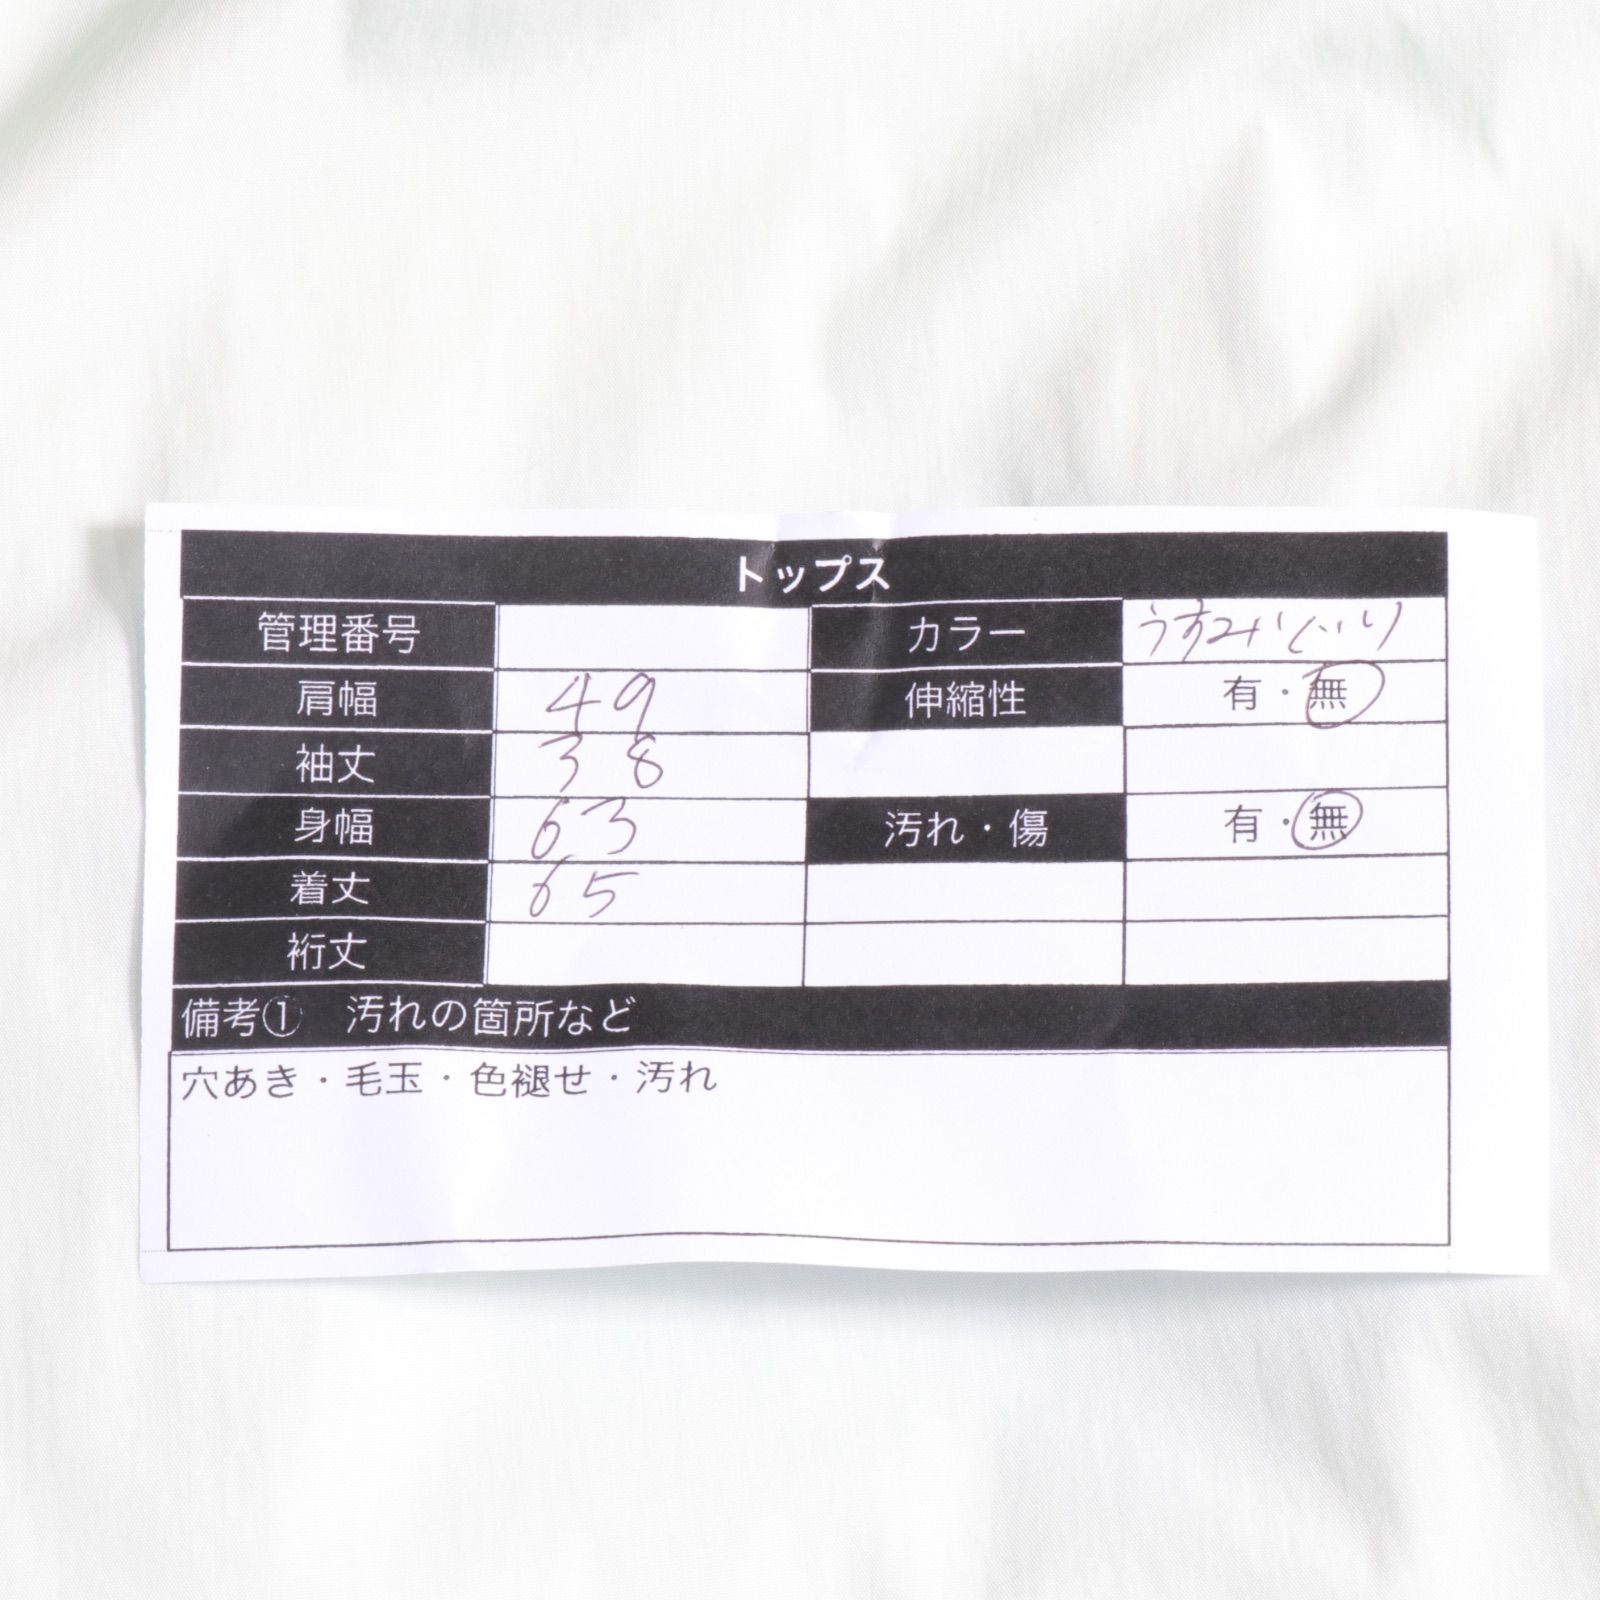 トップス
管理番号 カラー うすみどり
肩幅 49 伸縮性 有・無
袖丈 38
身幅 63 汚れ・傷 有・無
着丈 65
裄丈
備考① 汚れの箇所など
穴あき・毛玉・色褪せ・汚れ